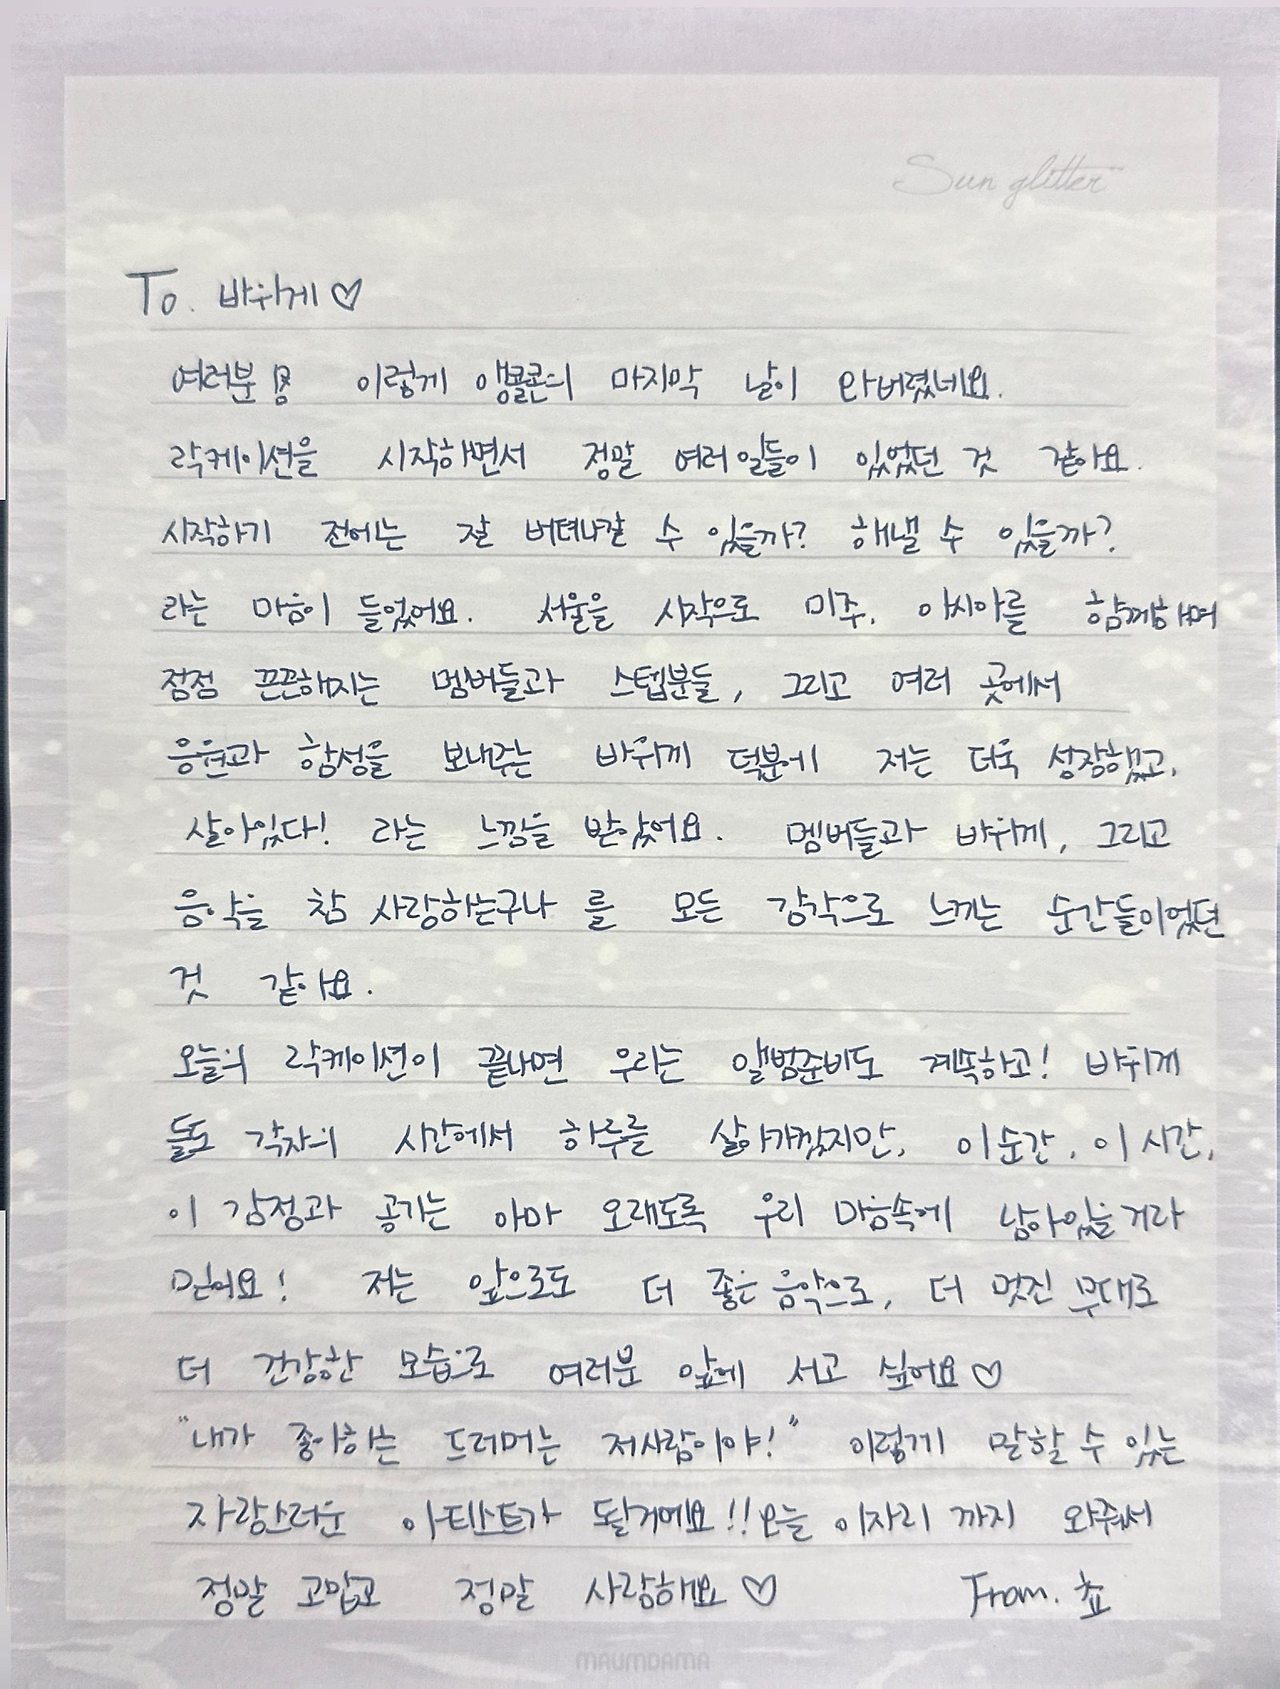 Sun glitter
To. 바위게♡
여러분 이렇게 앵콜콘의 마지막 날이 와버렸네요.
락케이션을 시작하면서 정말 여러일들이 있었던 것 같아요.
시작하기 전에는 잘 버텨나갈 수 있을까? 해낼 수 있을까?
라는 마음이 들었어요. 서울을 시작으로 미주, 아시아를 함께하며
점점 끈끈해지는 멤버들과 스텝분들, 그리고 여러 곳에서
응원과 함성을 보내주는 바위게 덕분에 저는 더욱 성장했고,
살아있다! 라는 느낌을 받았어요. 멤버들과 바위게, 그리고
음악을 참 사랑하는구나 를 모든 감각으로 느끼는 순간들이었던
것 같아요.
오늘의 락케이션이 끝나면 우리는 앨범준비도 계속하고! 바위게
들도 각자의 시간에서 하루를 살아가겠지만, 이순간, 이 시간,
이 감정과 공기는 아마 오래도록 우리 마음속에 남아있을거라
믿어요! 저는 앞으로도 더 좋은 음악으로, 더 멋진 무대로
더 건강한 모습으로 여러분 앞에 서고 싶어요♡
"내가 좋아하는 드러머는 저사람이야!" 이렇게 말할 수 있는
자랑스러운 아티스트가 될거에요!! 오늘 이자리 까지 와줘서
정말 고맙고 정말 사랑해요♡ From. 쵸
MAUMDAMA